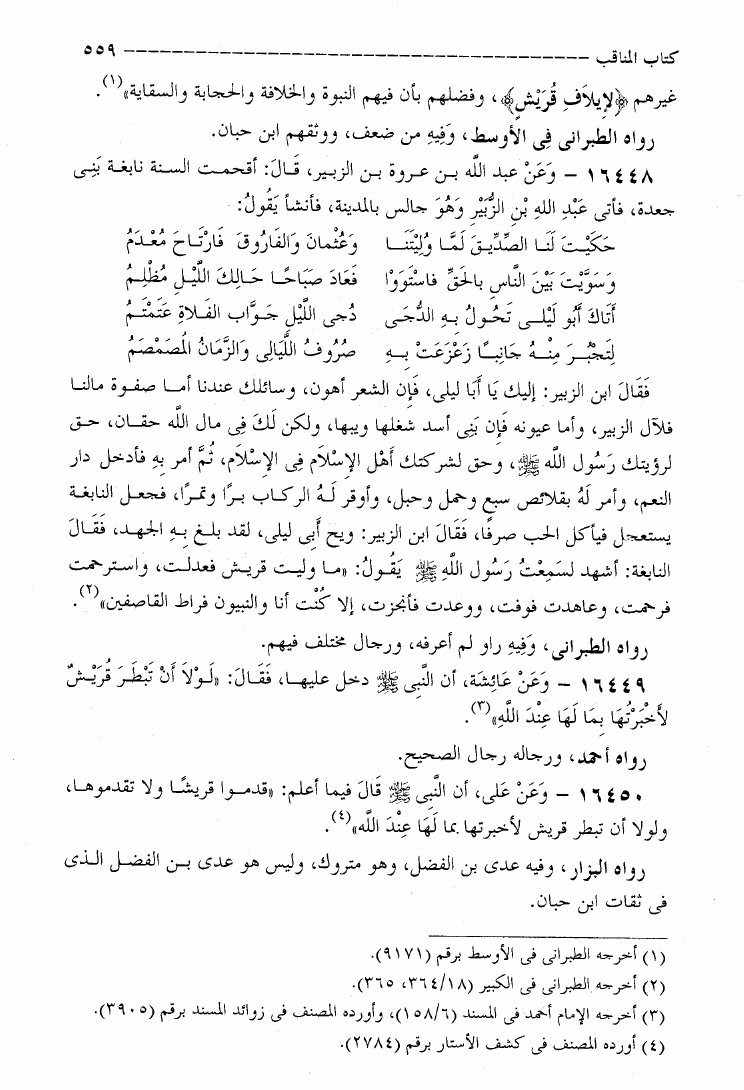 كتاب المناقب ------------------------------------------ ٥٥٩
غيرهم ﴿لإيلاَفِ قُرَيْشٍ﴾، وفضلهم بأن فيهم النبوة والخلافة والحجابة والسقاية»(١).
رواه الطبرانى فى الأوسط، وَفِيهِ من ضعف، ووثقهم ابن حبان.
١٦٤٤٨ - وَعَنْ عبد الله بن عروة بن الزبير، قَالَ: أقحمت السنة نابغة بَنِى
جعدة، فأتى عَبْدِ اللهِ بْنِ الزُّبَيْرِ وَهُوَ جالس بالمدينة، فأنشأ يَقُولُ:
حَكَيْتَ لَنَا الصِّدِّيقَ لَمَّا وُلِيْتَنَا وَعُثْمانَ وَالفَارُوقَ فَارْتَاحَ مُعْدَمُ
وَسَوَّيْتَ بَيْنَ النَّاسِ بالحَقِّ فاسْتَوَوْا فَعَادَ صَبَاحًا حَالِكَ اللَّيْلِ مُظْلِمُ
أَتَاكَ أَبُو لَيْلَى تَحُولُ بِهِ الدُّجَى دُجى اللَّيْلِ جَوَّاب الفَلاةِ عَتَمْتَمُ
لِتَجْبُرَ مِنْهُ جَانِبًا زَعْزَعَتْ بِهِ صُرُوفُ اللَّيَالِى وَالزَّمَانُ المُصَمْصَمُ
فَقَالَ ابن الزبير: إليك يَا أَبَا ليلى، فَإن الشعر أهون، وسائلك عندنا أما صفوة مالنا
فلآل الزبير، وأما عيونه فَإن بَنِى أسد شغلها ويبها، ولكن لَكَ فِى مال الله حقان، حق
لرؤيتك رَسُول الله ﷺ، وحق لشركتك أَهْل الإِسْلاَم فِى الإِسْلاَم، ثُمَّ أمر بِهِ فأدخل دار
النعم، وأمر لَهُ بقلائص سبع وحمل وحبل، وأوقر لَهُ الركاب برًا وتمرًا، فجعل النابغة
يستعجل فيأكل الحب صرفًا، فَقَالَ ابن الزبير: ويح أَبِى ليلى، لقد بلغ بِهِ الجهد، فَقَالَ
النابغة: أشهد لسَمِعْتُ رَسُول اللَّهِ ﷺ يَقُولُ: «ما وليت قريش فعدلت، واسترحمت
فرحمت، وعاهدت فوفت، ووعدت فأنجزت، إلا كُنْت أنا والنبيون فراط القاصفين»(٢).
رواه الطبرانى، وَفِيهِ راو لم أعرفه، ورجال مختلف فيهم.
١٦٤٤٩ - وَعَنْ عَائِشَة، أن النَّبِى ﷺ دخل عليها، فَقَالَ: «لَوْلاَ أَنْ تَبْطَرَ قُرَيْشٌ
لأَخْبَرْتُهَا بِمَا لَهَا عِنْدَ اللَّهِ»(٣).
رواه أحمد، ورجاله رجال الصحيح.
١٦٤٥٠ - وَعَنْ عَلى، أن النَّبِى ﷺ قَالَ فيما أعلم: «قدموا قريشًا ولا تقدموها،
ولولا أن تبطر قريش لأخبرتها بما لَهَا عِنْدَ اللَّه»(٤).
رواه البزار، وفيه عدى بن الفضل، وهو متروك، وليس هو عدى بن الفضل الذى
فى ثقات ابن حبان.
(١) أخرجه الطبرانى فى الأوسط برقم (٩١٧١).
(٢) أخرجه الطبرانى فى الكبير (٣٦٤/١٨، ٣٦٥).
(٣) أخرجه الإمام أحمد فى المسند (١٥٨/٦)، وأورده المصنف فى زوائد المسند برقم (٣٩٠٥).
(٤) أورده المصنف فى كشف الأستار برقم (٢٧٨٤).